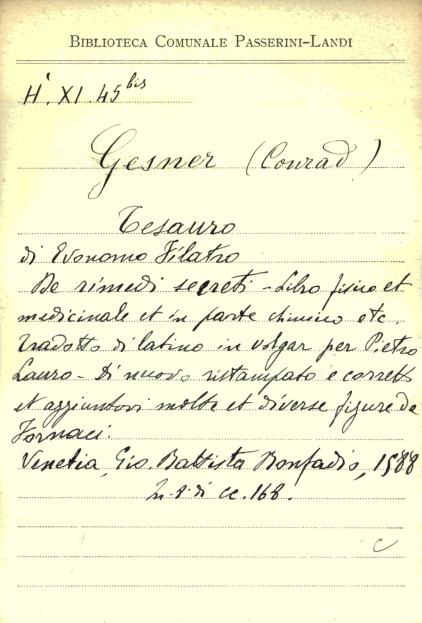 BIBLIOTECA COMUNALE PASSERINI-LANDI
H. XI. 45 bis
Gesner (Conrad)
Tesauro
di Evonomo Filatro
De rimedi secreti - Libro fisico et
medicinale et in parte chimico etc.
Tradotto di latino in volgar per Pietro
Lauro - Di nuovo ristampato e corretto
et aggiuntovi molte et diverse figure de
Fornaci.
Venetia, Gio. Battista Bonfadio, 1588
In-8 di cc. 168.
C